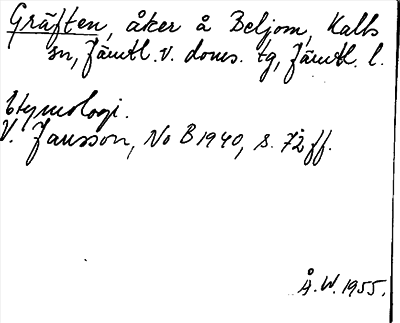 Gräften, åker å Beljom, Kalls
sn, Jämtl. v. doms. tg, Jämtl. l.
Etymologi.
V. Jansson, NoB 1940, s. 72 ff.
Å.W. 1955.